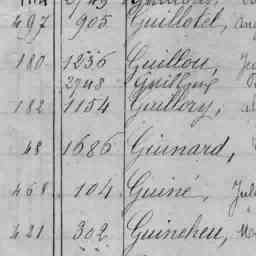 497 905 Guillotel,
180 1236 Guillou,
2748 Guillouy
182 1154 Guillory,
48 1686 Guinard,
468 104 Guiné, Jul
421 302 Guineheu,